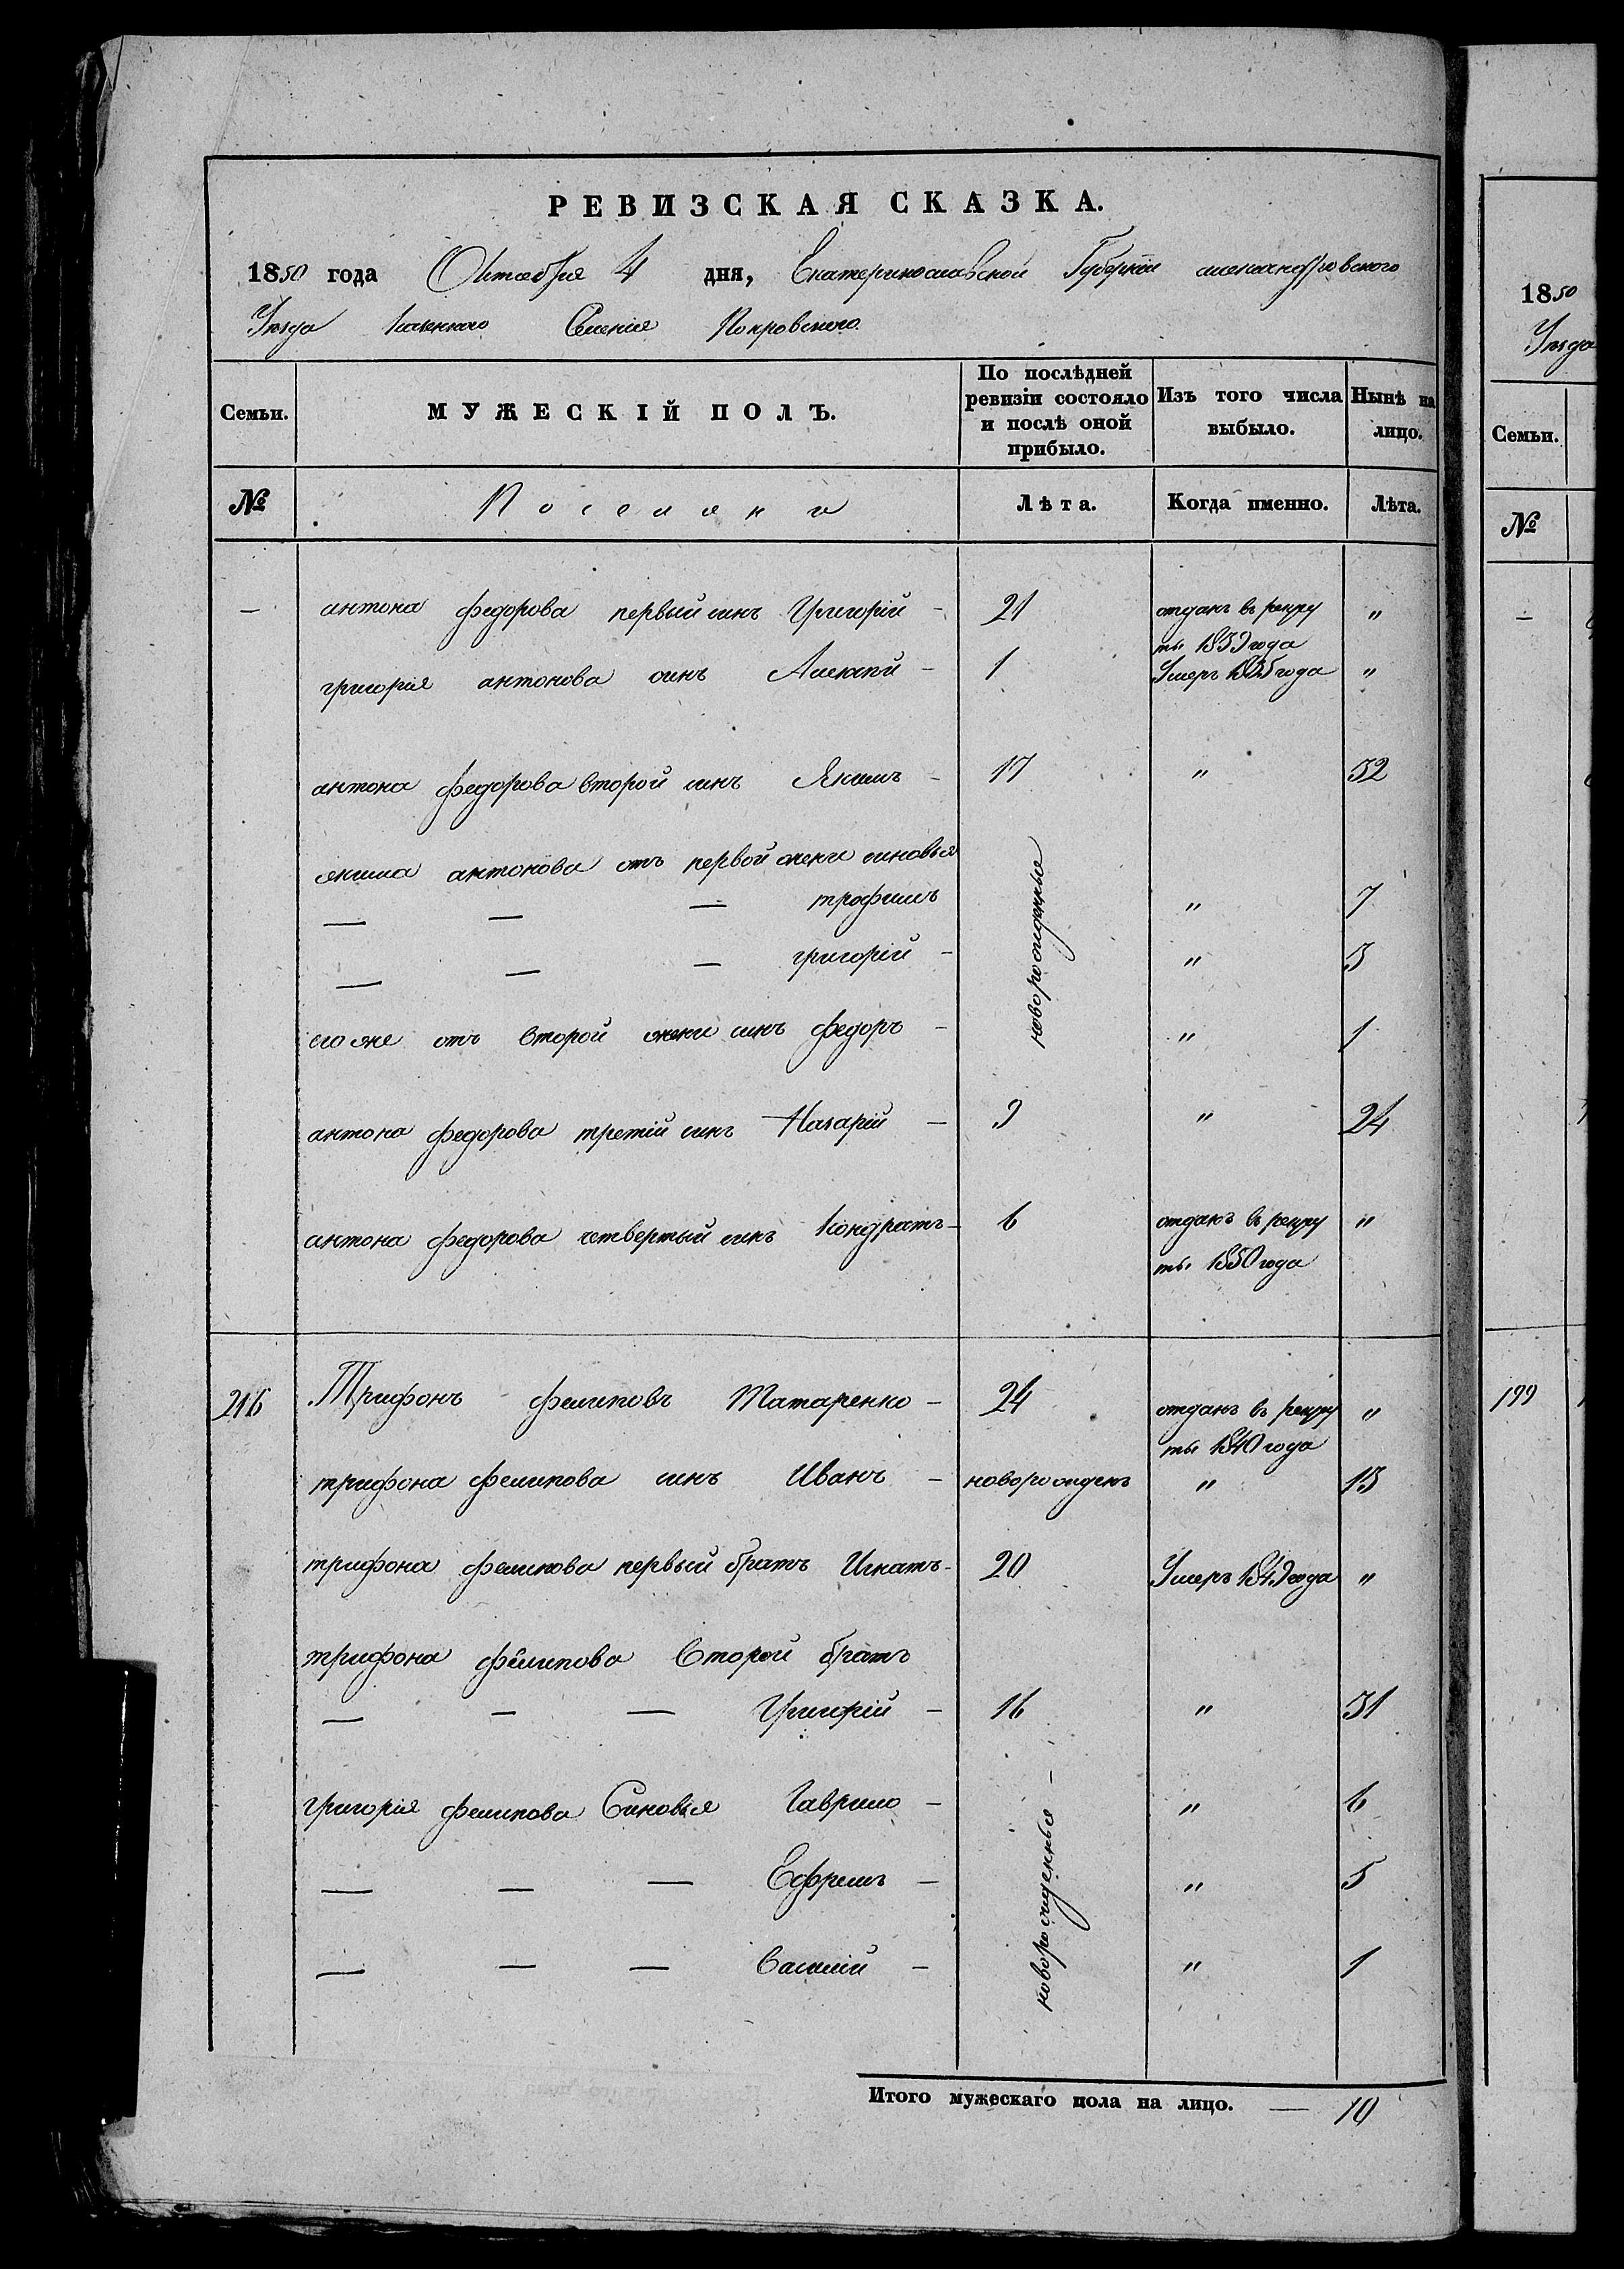 РЕВИЗСКАЯ СКАЗКА.
1850 года Октября 4 дня, Екатеринославской Губерніи александровского
Уезда казенного Селенія Покровского
Семьи. МУЖЕСКІЙ ПОЛЪ. По послѣдней ревизіи состояло и послѣ оной прибыло. Изъ того числа выбыло. Нынѣ на лицо.
№ Поселяни Лѣта. Когда именно. Лѣта.
— антона федорова первый синъ Григорій — 21 отданъ въ рекру "
ты 1839 года
григорія антонова синъ Алексѣй — 1 Умеръ 1835 года "
антона федорова второй синъ Якимъ — 17 " 32
якима антонова отъ первой жени синовья
— — — трофимъ " 7
— — — григорій — " 3
новорожденные
его же отъ второй жени синъ федоръ — " 1
антона федорова третій синъ Назарій — 9 " 24
антона федорова четвертый синъ Кондратъ — 6 отданъ въ рекру "
ты 1850 года
216 Трифонъ филиповъ Татаренко — 24 отданъ въ рекру "
ты 1840 года
трифона филипова синъ Иванъ — новорожденъ " 13
трифона филипова первый братъ Игнатъ — 20 Умеръ 1849 года "
трифона филипова второй братъ
— — — Григорій — 16 " 31
григорія филипова Синовья Гаврило — " 6
— — — Ефремъ — " 5
— — — Василій — " 1
новорожденные —
Итого мужескаго пола на лицо. — 10
1850
Уезда
Семьи.
№
—
199